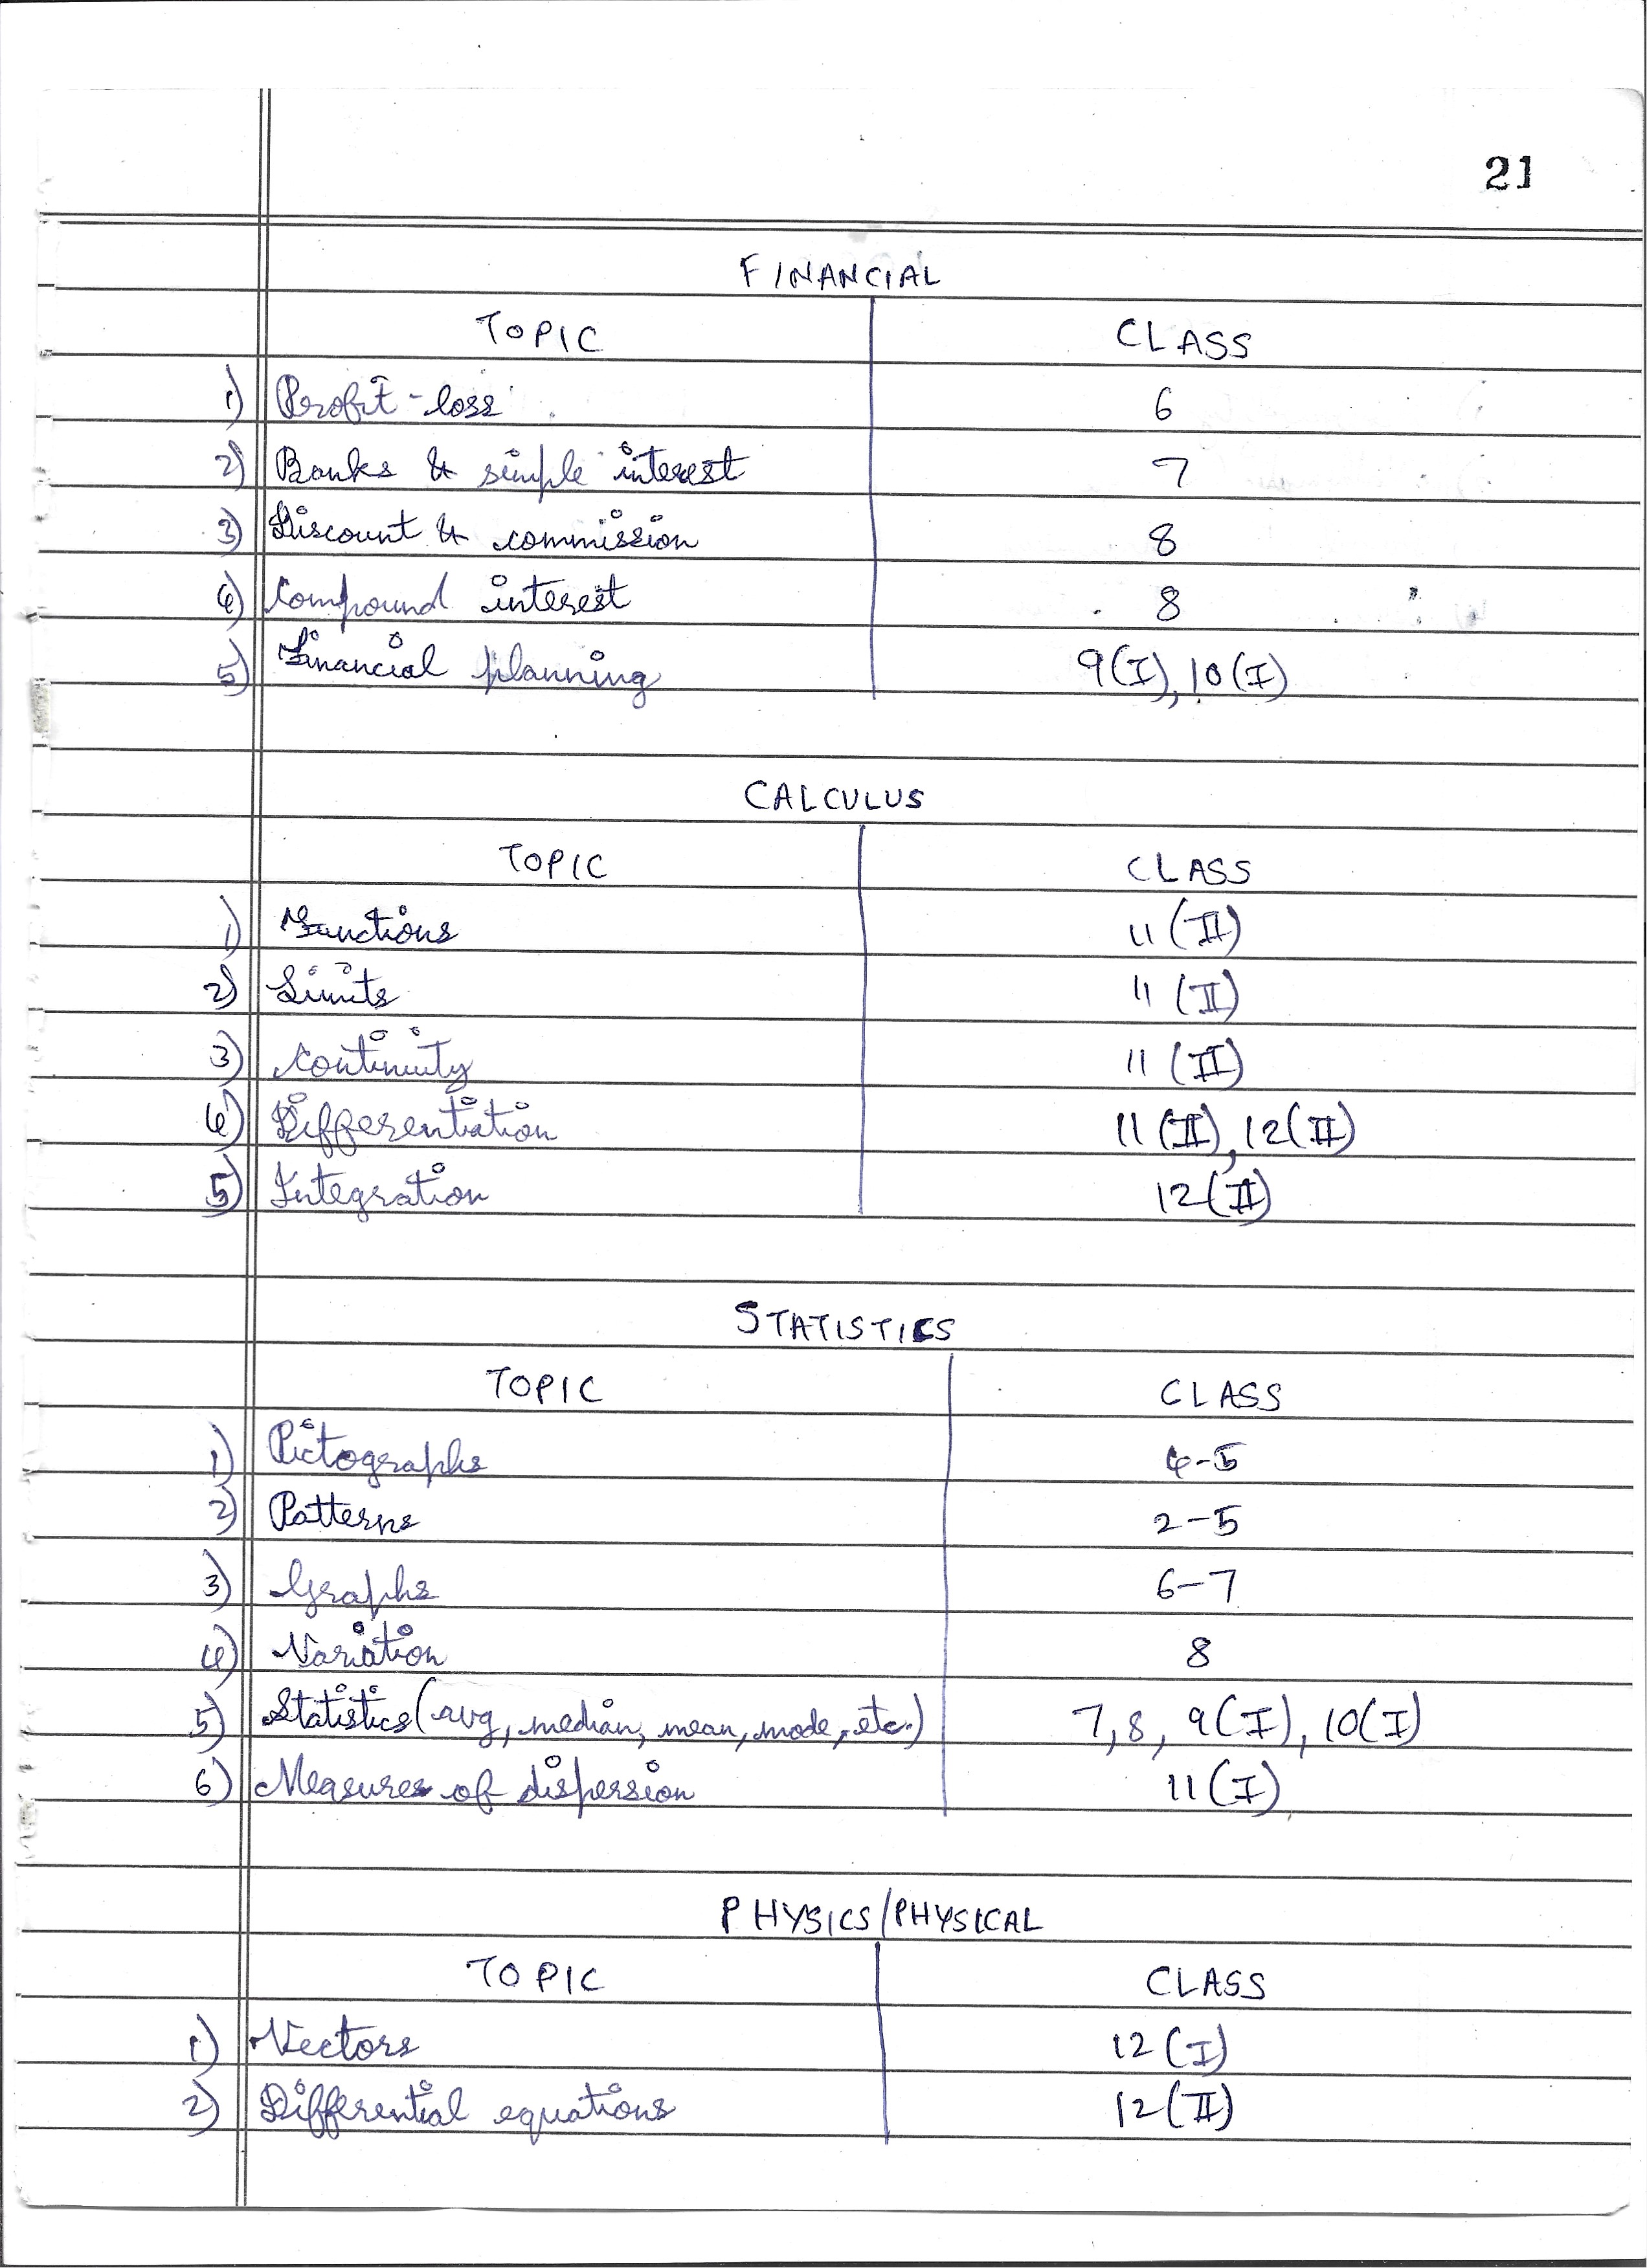 21
FINANCIAL
TOPIC CLASS
1) Profit-loss 6
2) Banks & simple interest 7
3) Discount & commission 8
4) Compound interest 8
5) Financial planning 9(I), 10(I)
CALCULUS
TOPIC CLASS
1) Functions 11(II)
2) Limits 11(II)
3) Continuity 11(II)
4) Differentiation 11(II), 12(II)
5) Integration 12(II)
STATISTICS
TOPIC CLASS
1) Pictographs 4-5
2) Patterns 2-5
3) Graphs 6-7
4) Variation 8
5) Statistics (avg, median, mean, mode, etc.) 7, 8, 9(I), 10(I)
6) Measures of dispersion 11(I)
PHYSICS/PHYSICAL
TOPIC CLASS
1) Vectors 12(I)
2) Differential equations 12(II)